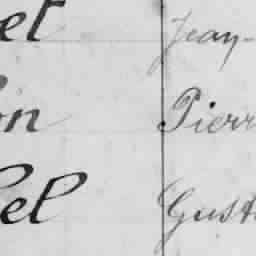 et Jean-
on Pierr
el Gust